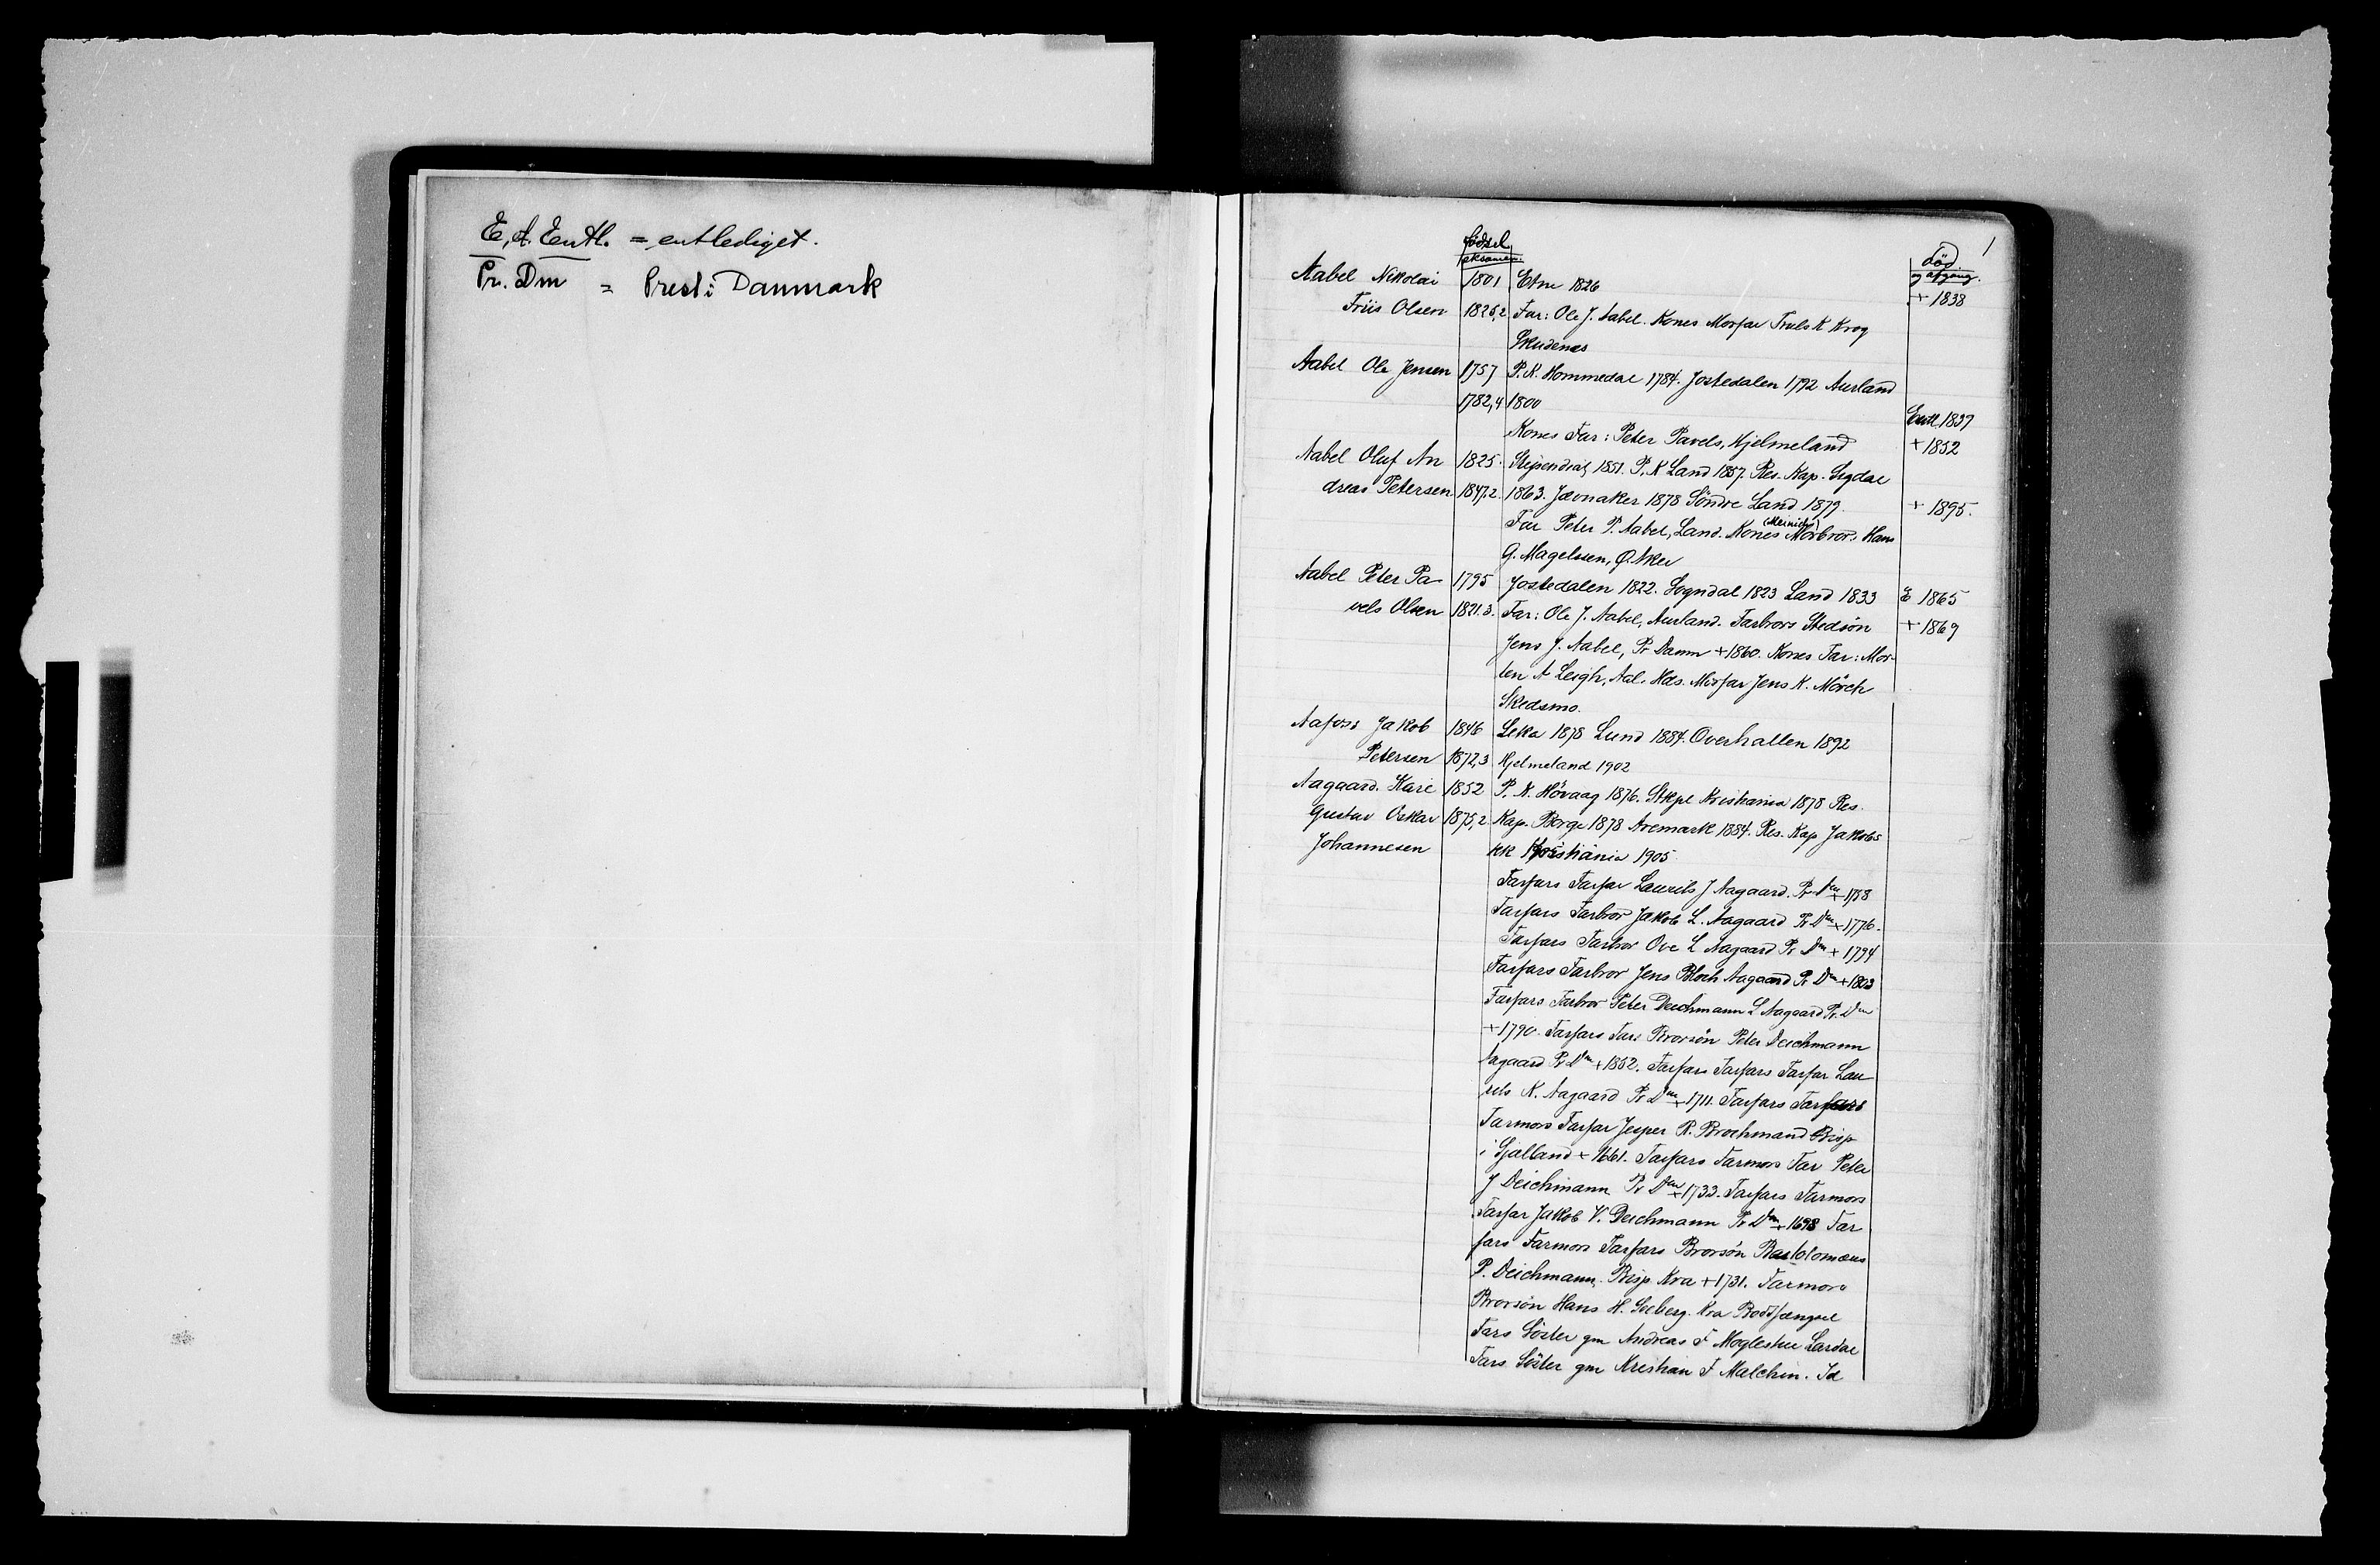 E, t. Entl. = entlediget.
Pr. Dm = Prest i Danmark
1
födsel
eksamen
död
og afgang.
Aabel Nikolai 1801 Etne 1826 + 1838
Friis Olsen 1825,2 Far: Ole J. Aabel. Kones Morfar Truls K Krog
Skudenes
Aabel Ole Jensen 1757 P.K. Hommedal 1784. Jostedalen 1792 Aurland
1782,4 1800 Entl. 1837
Kones Far: Peter Pavels, Hjelmeland + 1852
Aabel Oluf An 1825. Stipendiat 1851. P.K Land 1857. Res. Kap. Sigdal
dreas Petersen 1847,2. 1863. Jævnaker 1878 Söndre Land 1879. + 1895.
Far Peter P. Aabel, Land. Kones (Meinichs) Morbror: Hans
G. Magelssen, Ø. Aker
Aabel Peter Pa- 1795 Jostedalen 1822. Sogndal 1823 Land 1833 E 1865
vels Olsen 1821.3. Far: Ole J. Aabel, Aurland. Farbrors Stedsön + 1869
Jens J. Aabel, Pr Danm + 1860. Kones Far: Mor-
ten A Leigh, Aal. Hds. Morfar Jens K. Mörch
Skedsmo.
Aafoss Jakob 1846 Leka 1878 Lund 1884. Overhallen 1892
Petersen 1872,3 Hjelmeland 1902
Aagaard. Karl 1852 P. K. Hövaag 1876. Stkpl Kristiania 1878 Res.
Gustav Oskar 1875,2. Kap. Borge 1878 Aremark 1884. Res. Kap Jakobs
Johannesen kk Kristiania 1905
Farfars Farfar Laurits J Aagaard. Pr Dm + 1758
Farfars Farbror Jakob L. Aagaard Pr Dm + 1776.
Farfars Farbror Ove L Aagaard Pr Dm + 1794
Farfars Farbror Jens Bloch Aagaard Pr Dm + 1803
Farfars Farbror Peter Deichmann L Aagaard Pr. Dm
+ 1790. Farfars Fars Brorsön Peter Deichmann
Aagaard Pr Dm + 1852. Farfars Farfars Farfar Lau
rits K. Aagaard Pr Dm + 1711. Farfars Farfars
Farmors Farfar Jesper R. Brochmand Bisp
i Sjælland + 1661. Farfars Farmors Far Peter
J Deichmann Pr Dm + 1733. Farfars Farmors
Farfar Jakob V. Deichmann Pr Dm + 1698 Far
fars Farmors Farfars Brorsön Bartolomæus
P. Deichmann. Bisp Kra + 1731. Farmors
Brorsön Hans H. Seeberg. Kra Bodsfængsel
Fars Söster gm Andreas F Moglestue Lardal
Fars Söster gm Kristian F Malchin. Id